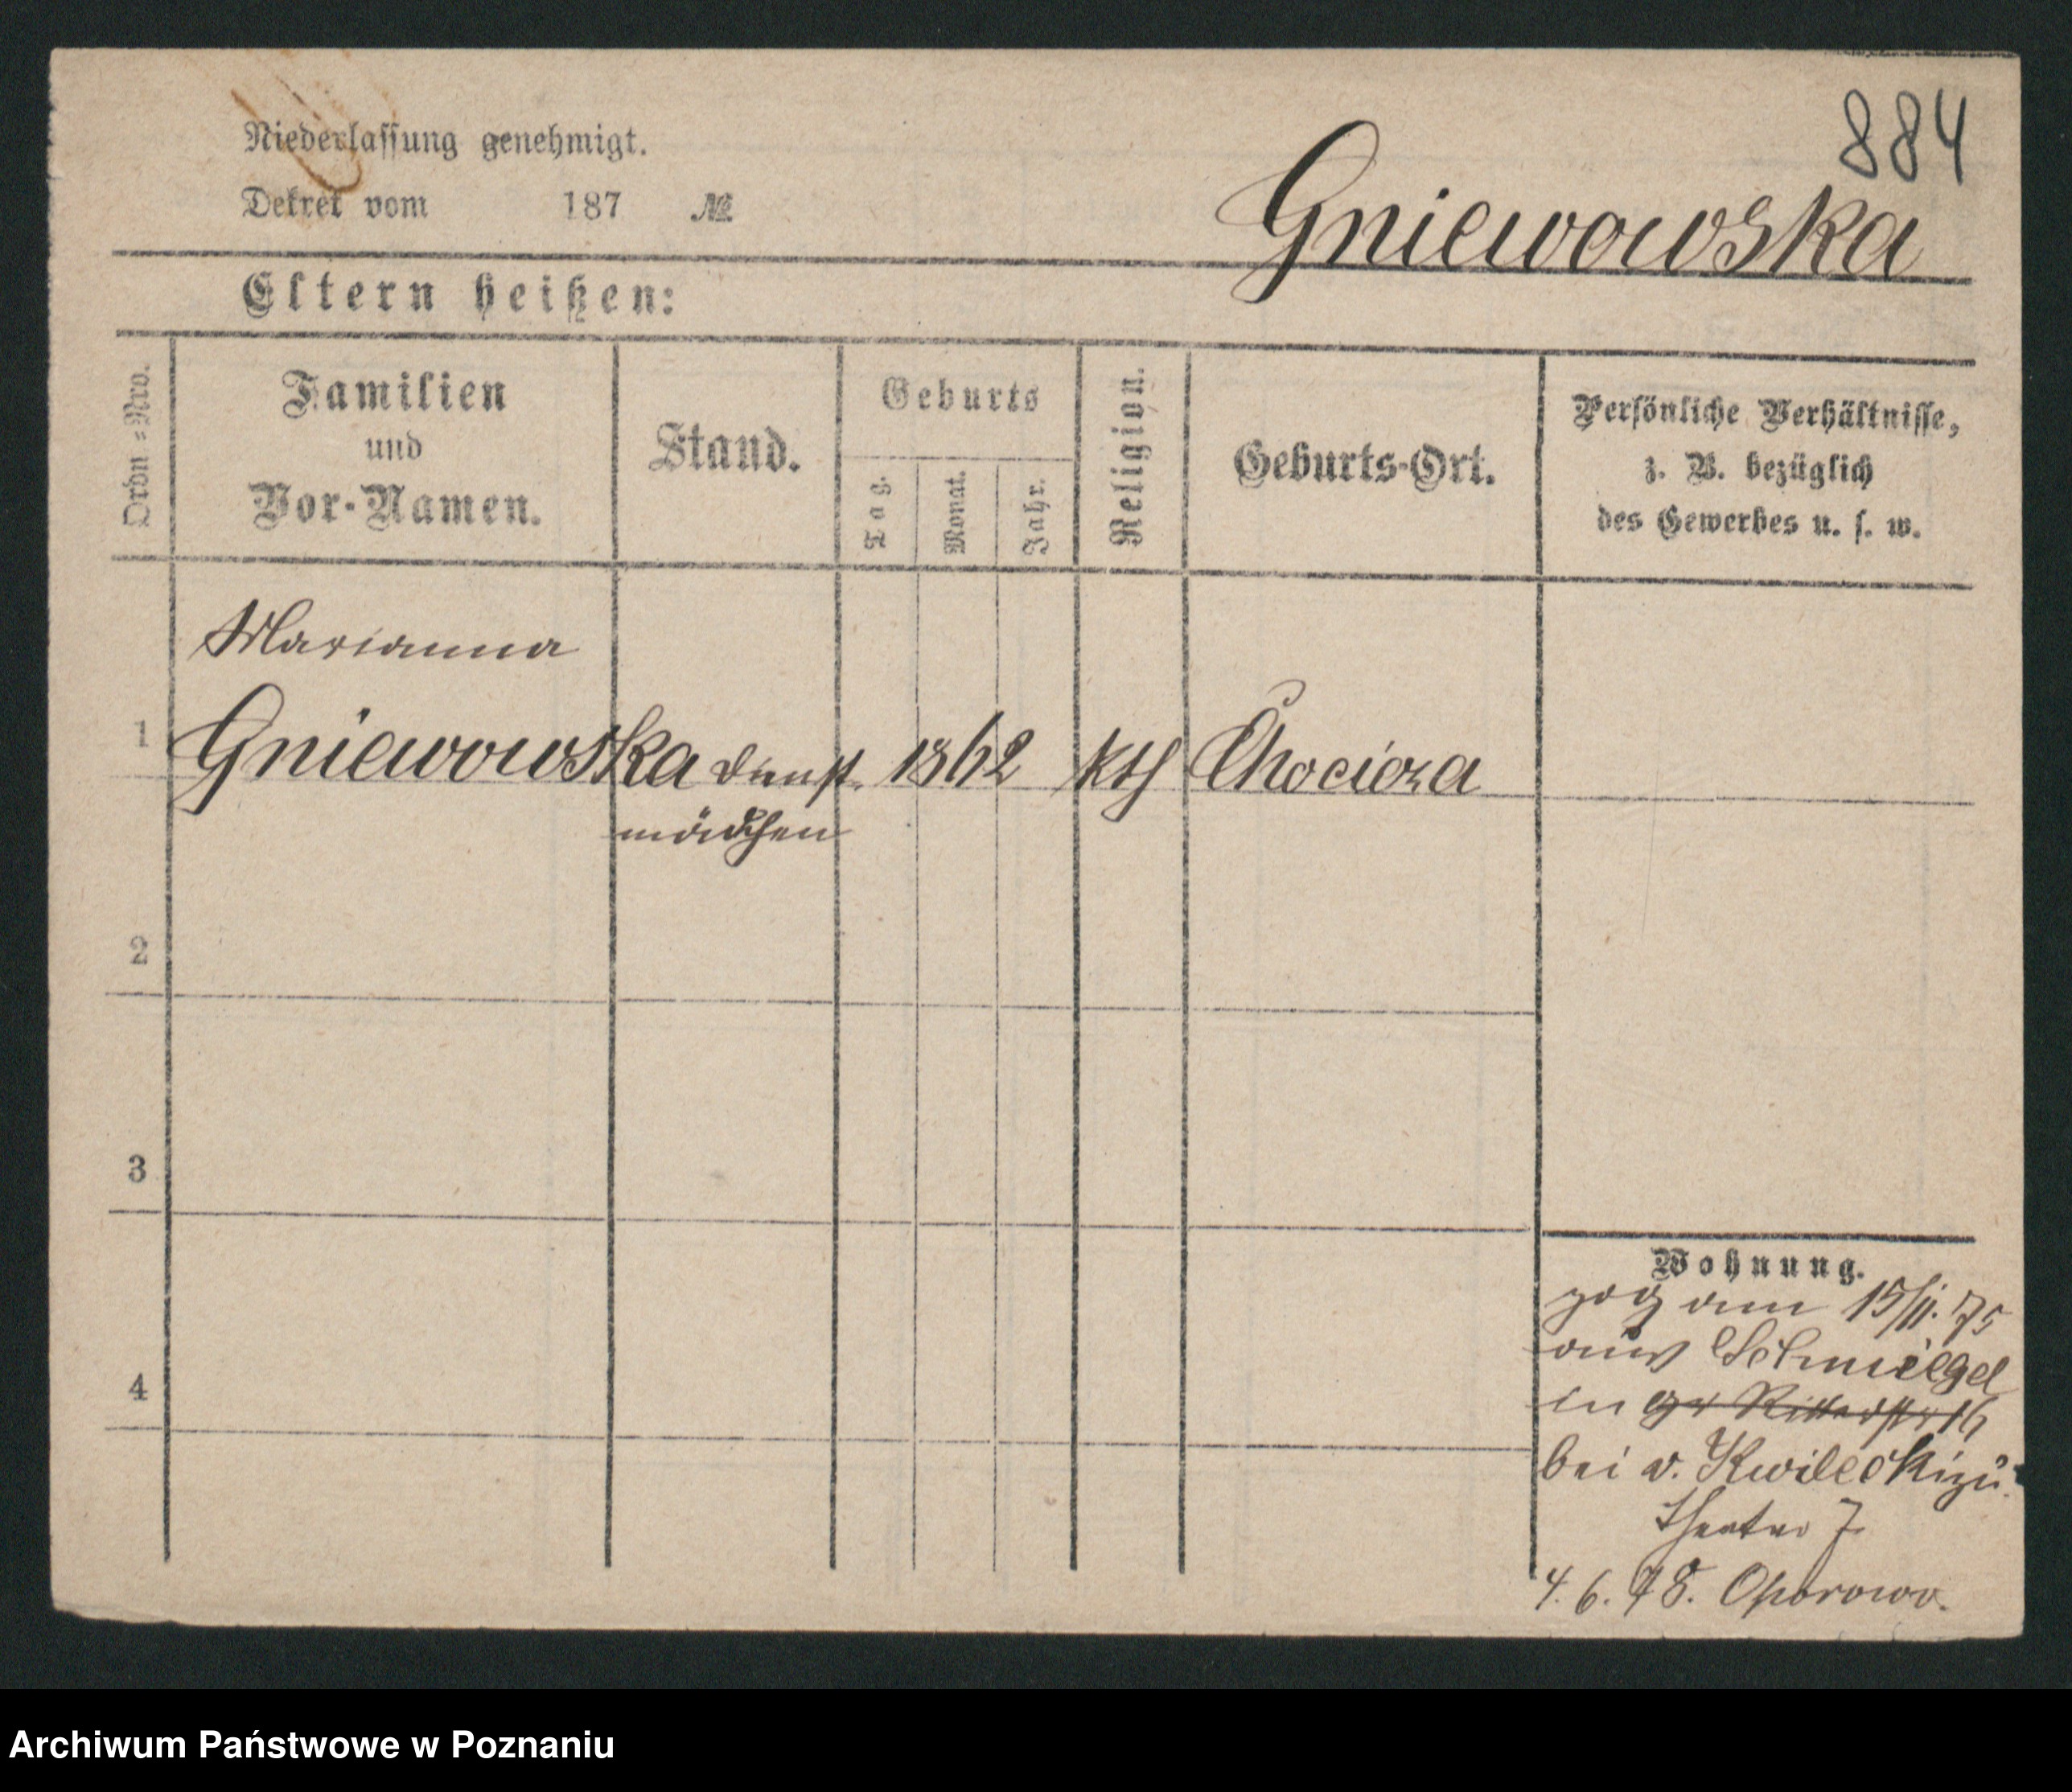 884
Niederlassung genehmigt.
Dekret vom 187 №
Gniewowska
Eltern heißen:
Ordn=Nro.
Familien
und
Vor-Namen.
Stand.
Geburts
Tag.
Monat.
Jahr.
Religion.
Geburts-Ort.
Persönliche Verhältnisse,
z. B. bezüglich
des Gewerbes u. s. w.
Marianna
1 Gniewowska Dienst 1862 kth Chocicza
mädchen
2
3
4
Wohnung.
zog am 15/11. 75
aus Schmiegel
in gr Ritterstr 16
bei v. Kwilecki
Theater 7
4. 6. 78. Oporowo.
Archiwum Państwowe w Poznaniu